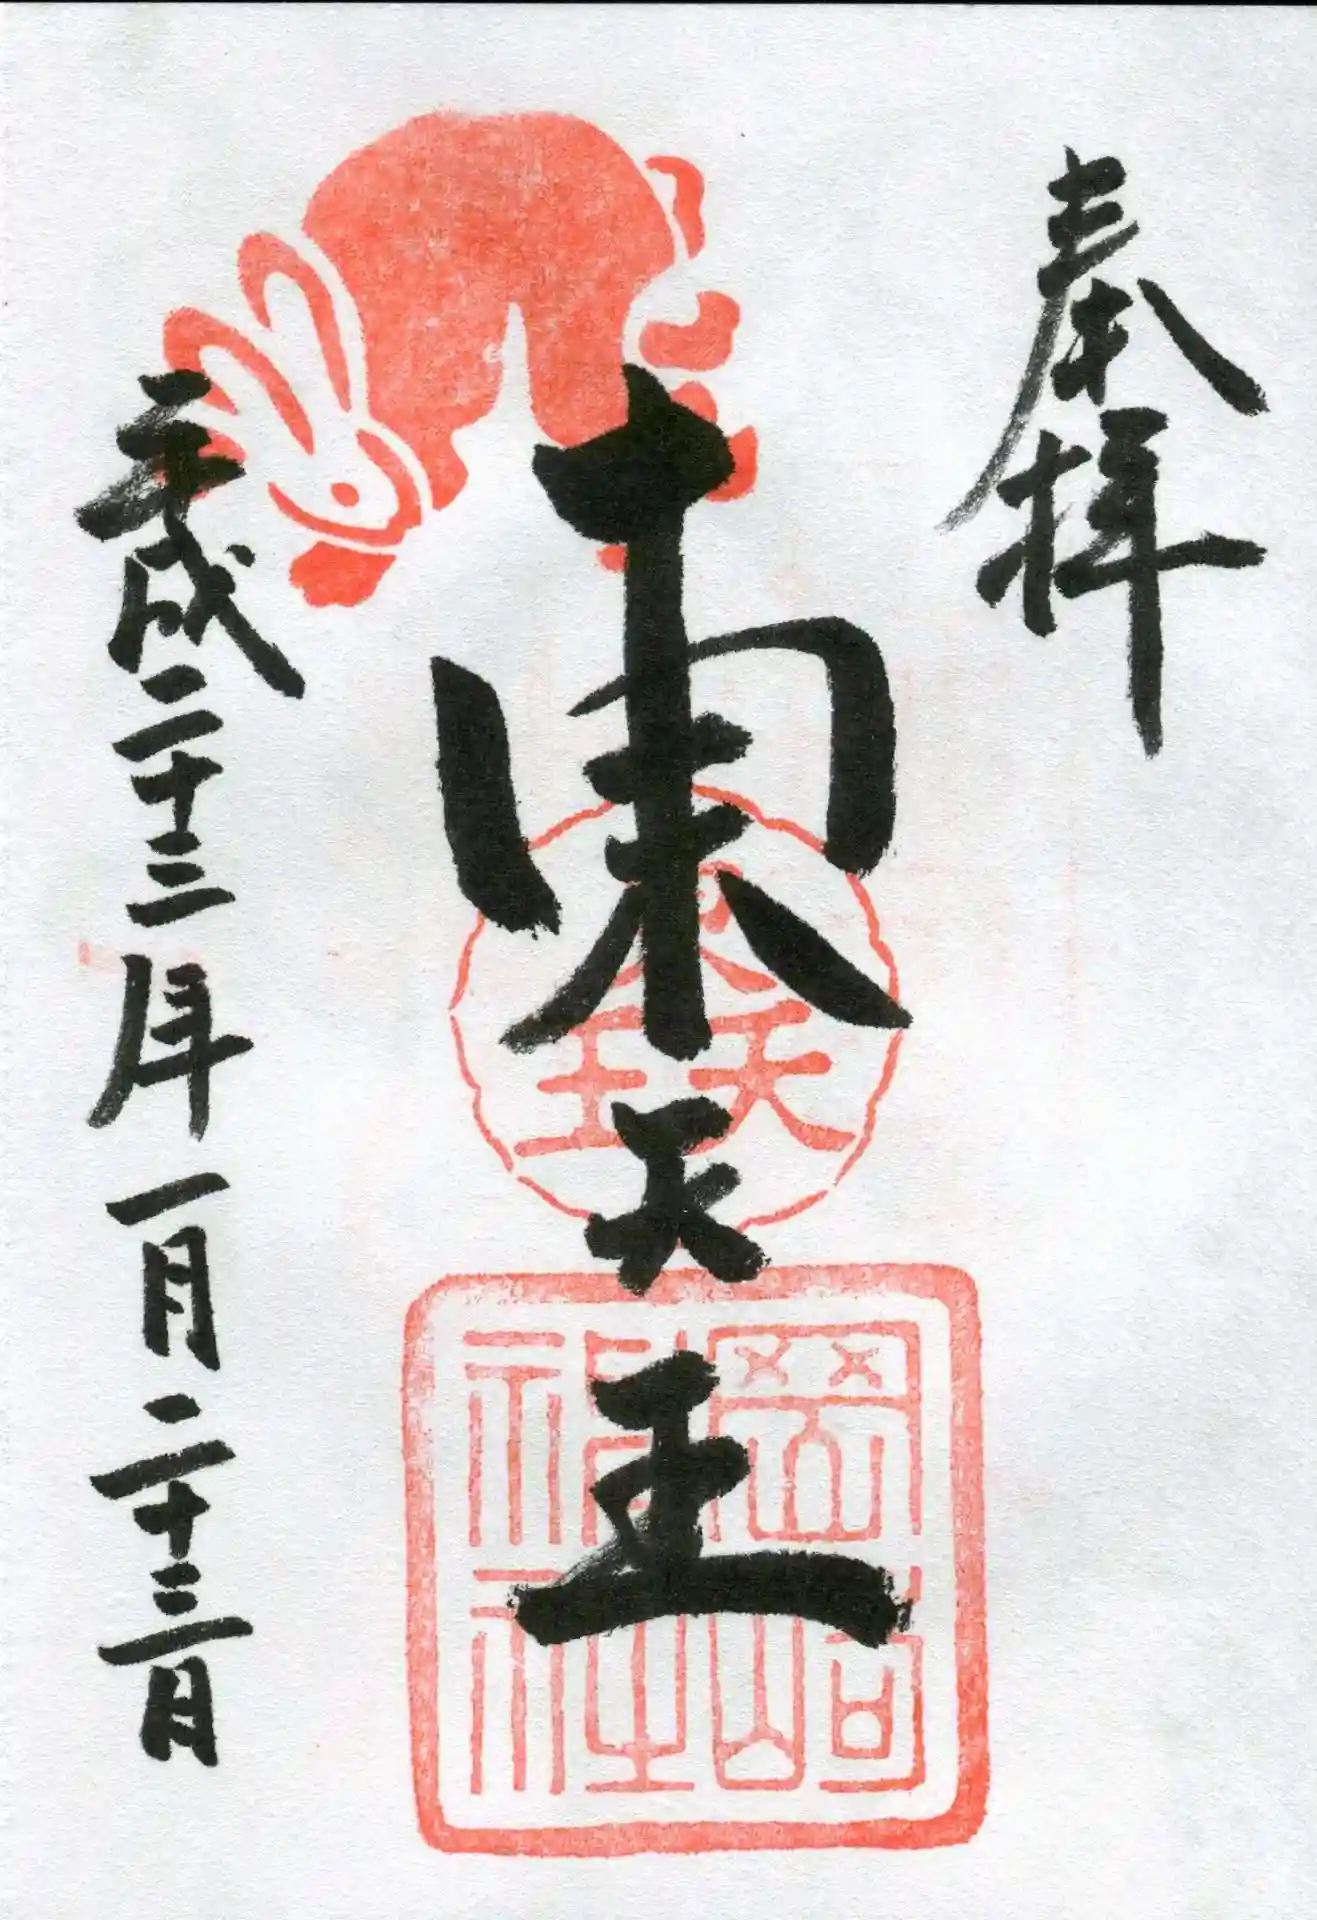 奉拝
東天王
平成二十三年一月二十三日
東天王
岡崎
神社